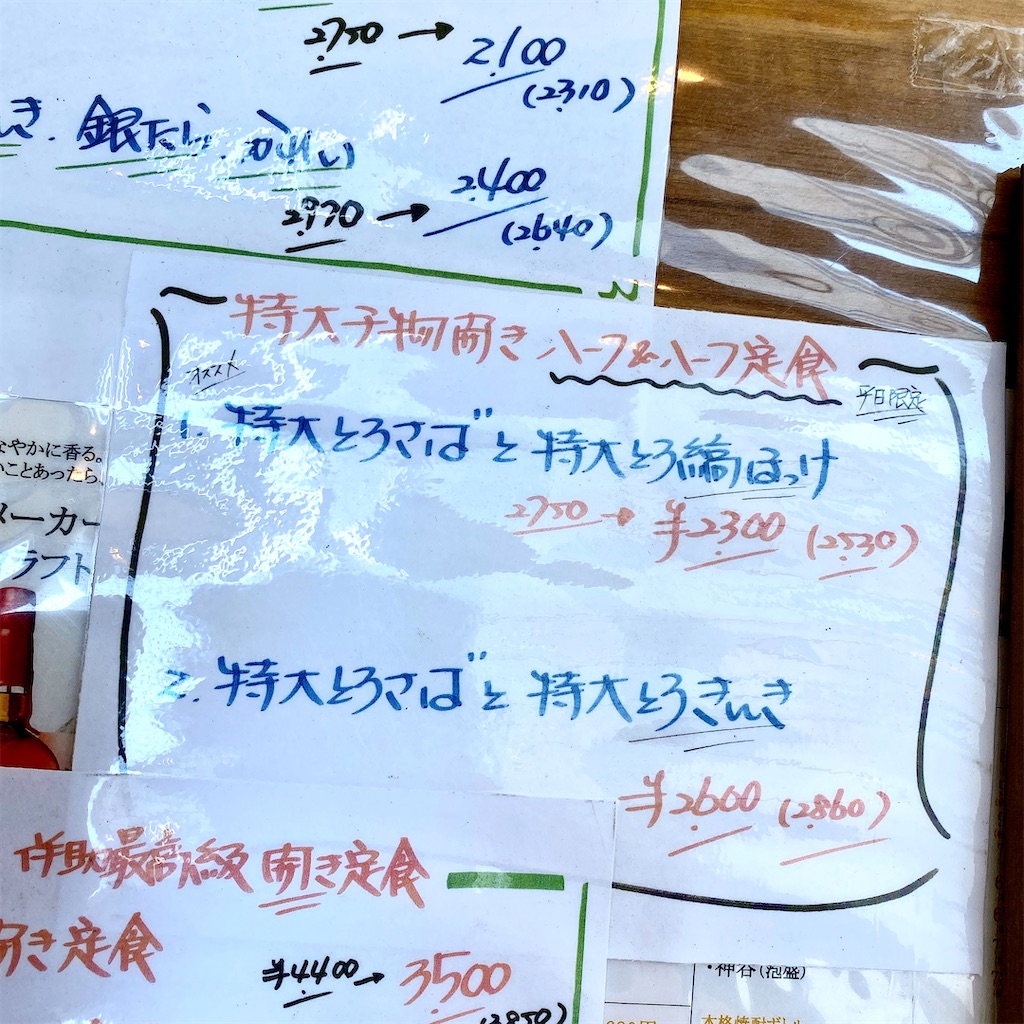 2750 → 2100
(2310)
き. 銀だら. かれい
2970 → 2400
(2640)
特大干物開き ハーフ&ハーフ定食
オススメ
平日限定
1. 特大とろさばと特大とろ縞ほっけ
2750 → ¥2300 (2530)
2. 特大とろさばと特大とろきんき
¥2600 (2860)
やかに香る。
ことあったら、
メーカー
ラフト
最高級 開き定食
き定食
¥4400 → 3500
(3850)
・神谷(泡盛)